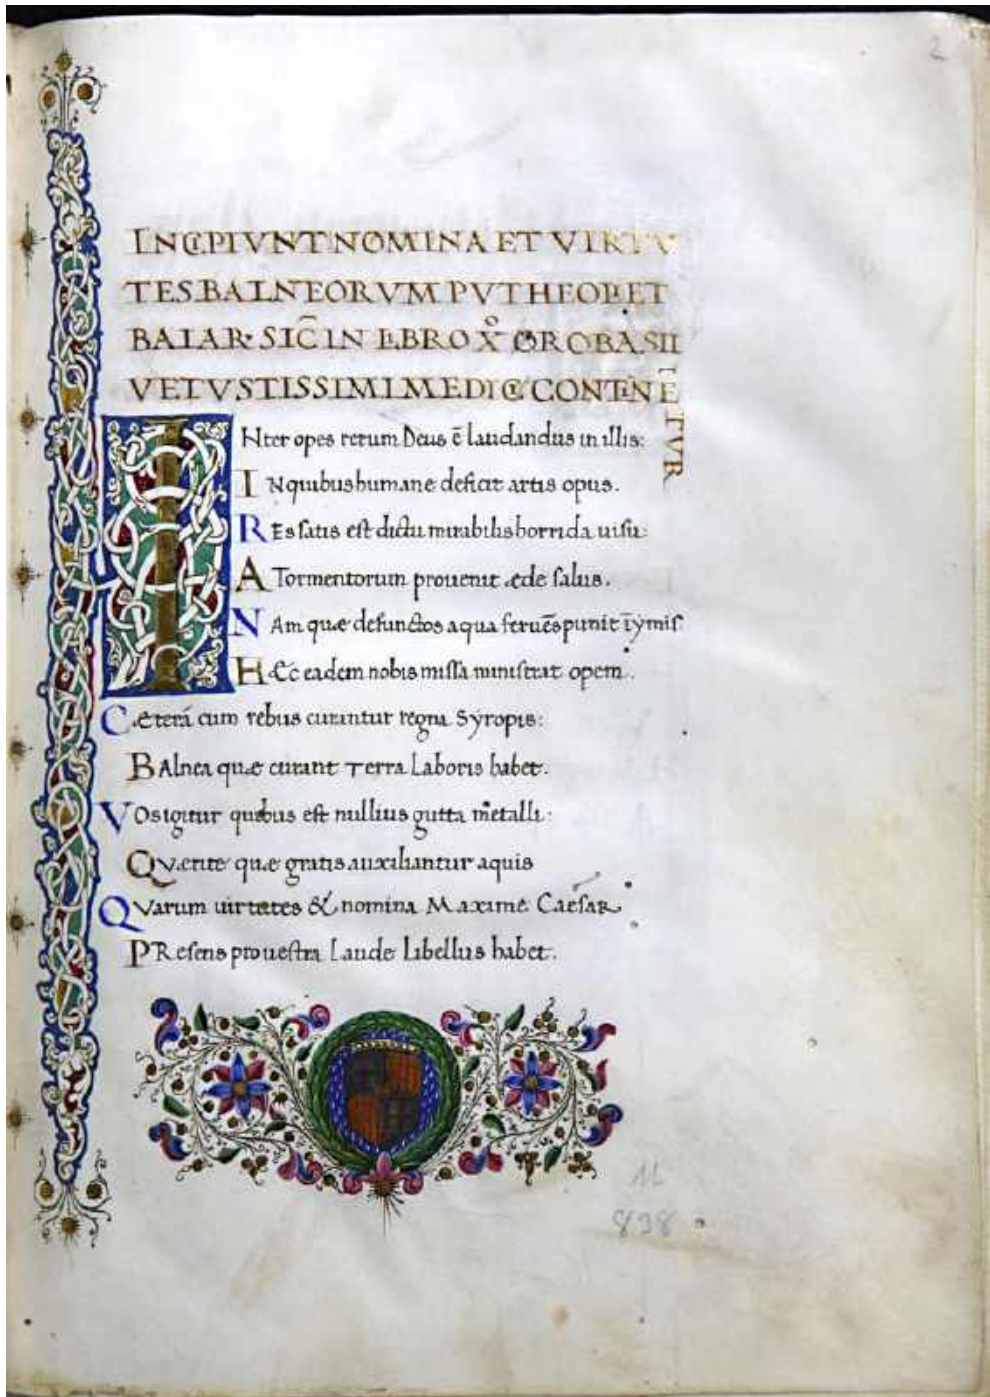 2
INCIPIVNT NOMINA ET VIRTV
TES BALNEORVM PVTHEOR ET
BAIAR· SIC̄ IN LIBRO X̊ OROBASII
VETVSTISSIMI MEDICI CONTINĒ
TVR
INter opes rerum Deus ē laudandus in illis:
INquibus humane deficit artis opus.
REs satis est dictu mirabilis horrida uisu:
ATormentorum prouenit æde salus.
NAm quæ defunctos aqua feruēs punit ī ymis
HÆc eadem nobis missa ministrat opem.
Cætera cum rebus curantur regna Syropis:
BAlnea quæ curant Terra Laboris habet.
VOs igitur quibus est nullius gutta metalli:
QVærite quæ gratis auxiliantur aquis
QVarum uirtutes & nomina Maxime CaesAR
PResens pro uestra Laude Libellus habet.
11
898